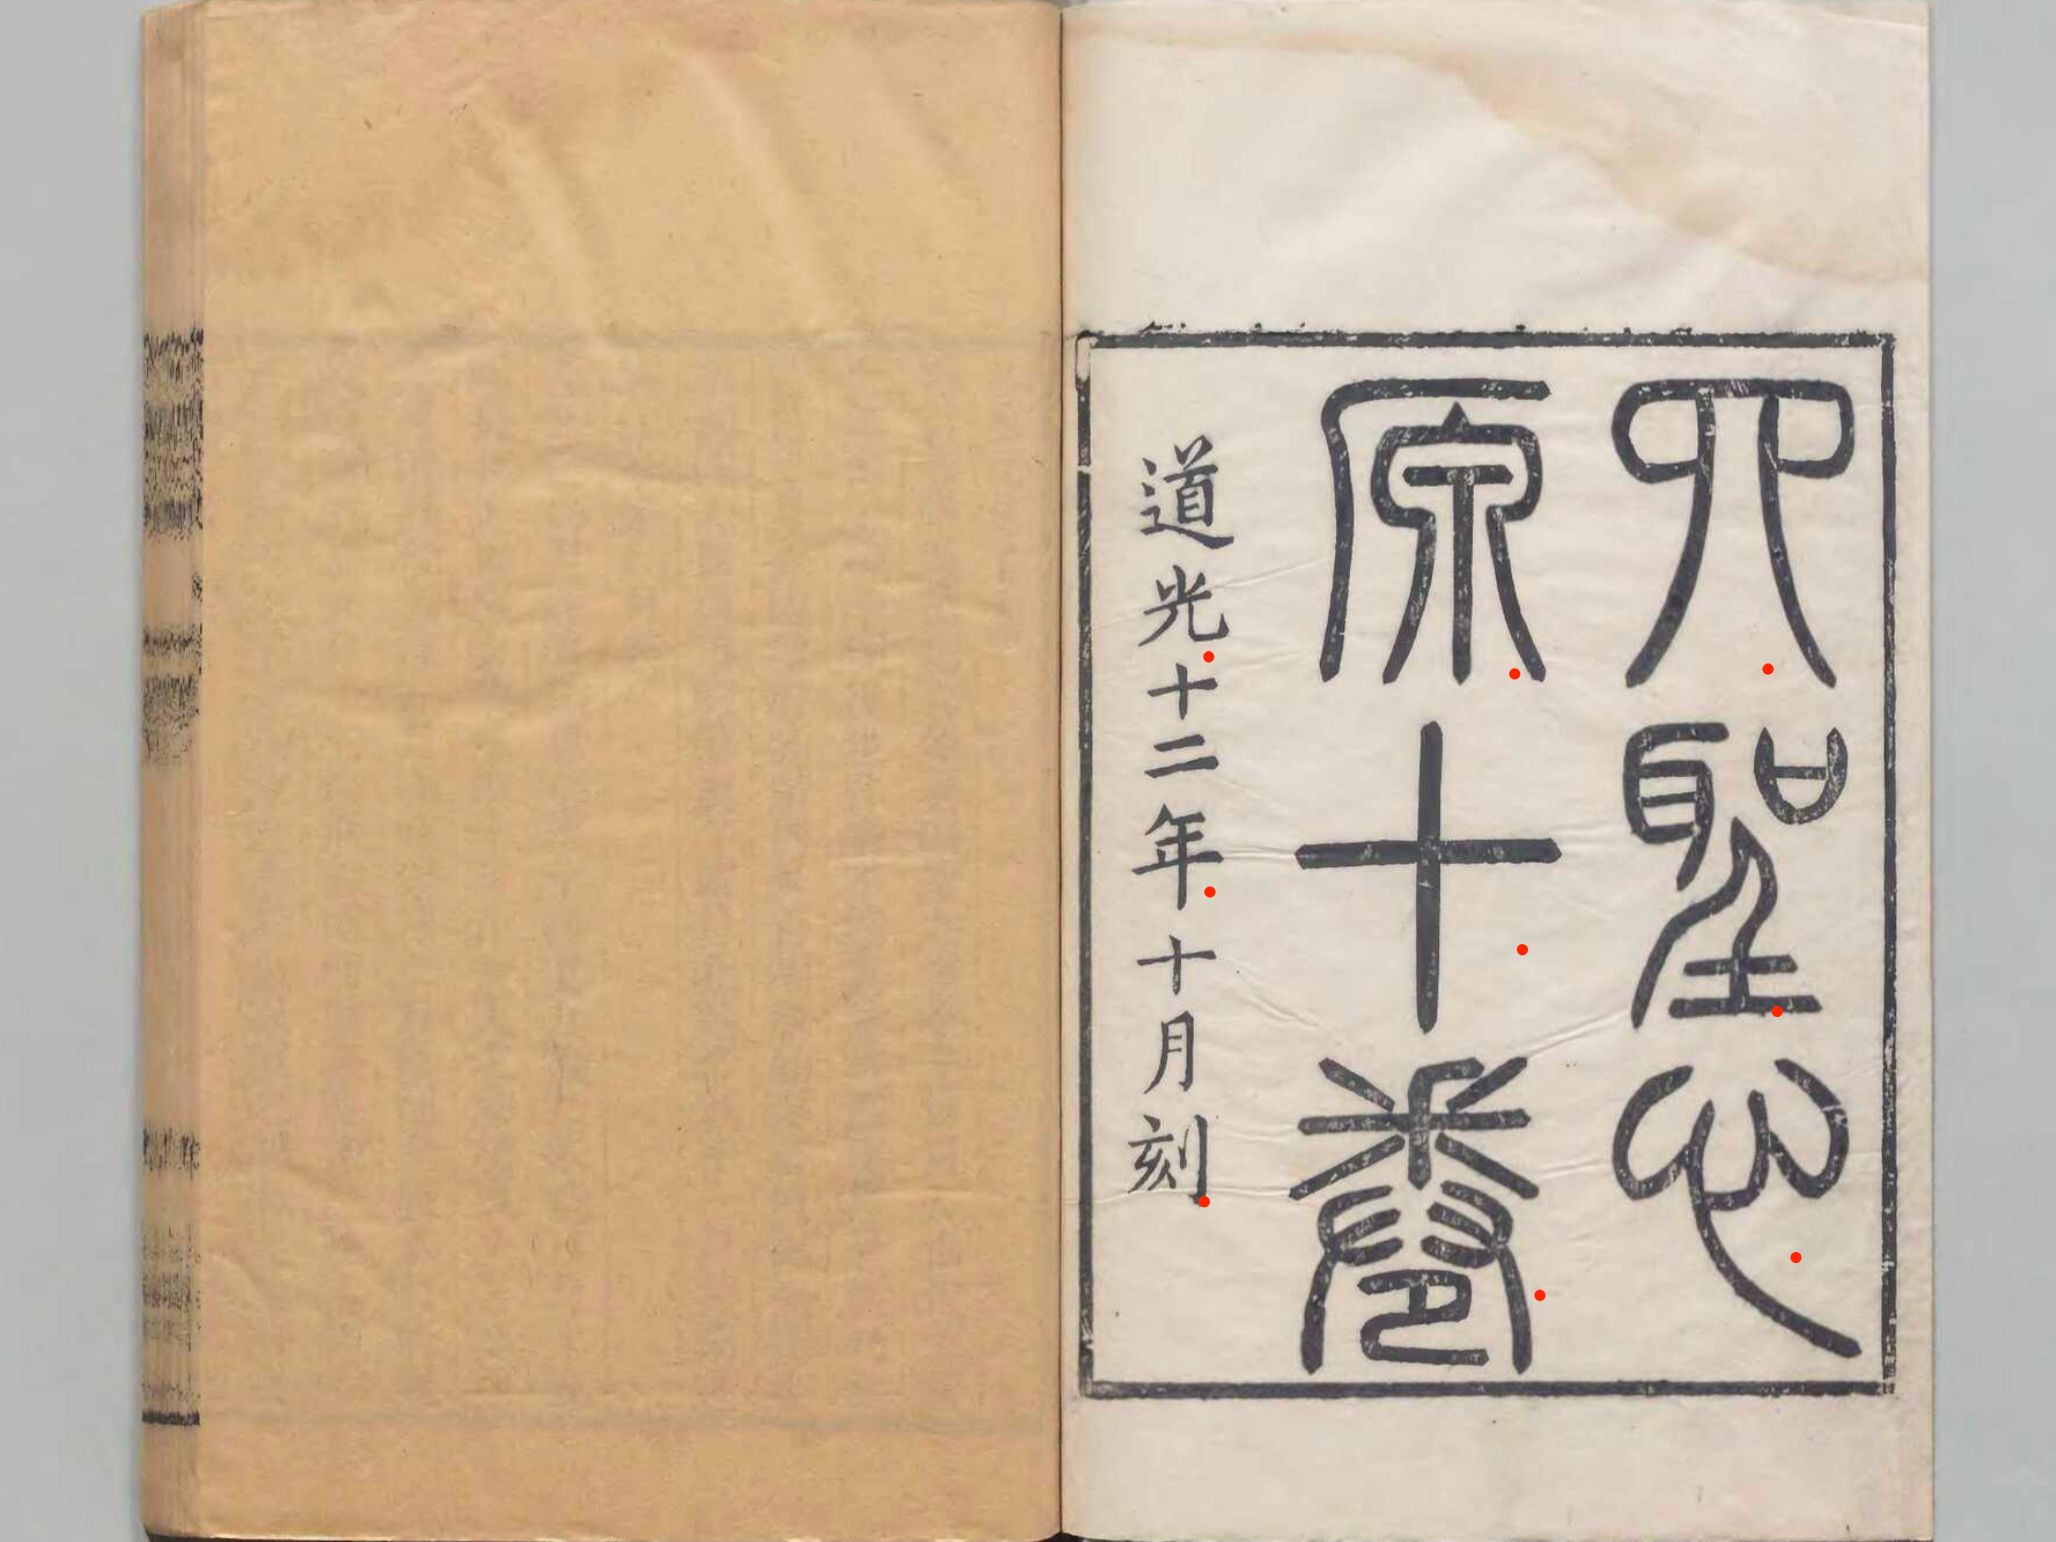 四聖心
原十卷
道光十二年十月刻